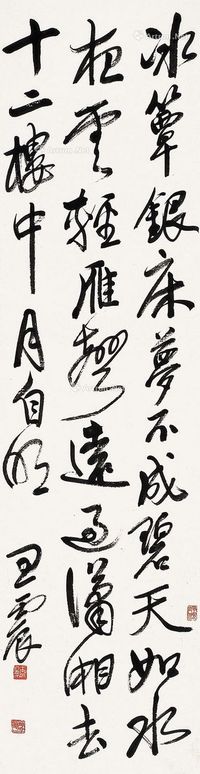 冰簟銀床夢不成碧天如水
夜雲輕雁聲遠過瀟湘去
十二樓中月自明
王震